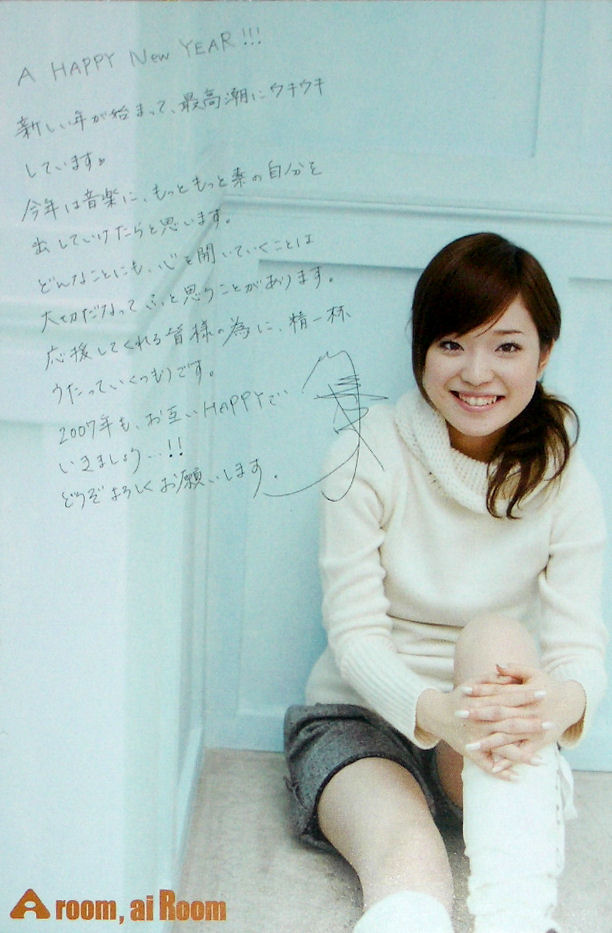 A HAPPY New YEAR!!!
新しい年が始まって、最高潮にウキウキ
しています。
今年は音楽に、もっともっと素の自分を
出していけたらと思います。
どんなことにも、心を開いていくことは
大切だなってふっと思うことがあります。
応援してくれる皆様の為に、精一杯
うたっていくつもりです。
2007年も、お互いHAPPYで
いきましょう…!!
どうぞよろしくお願いします.
A room, ai Room